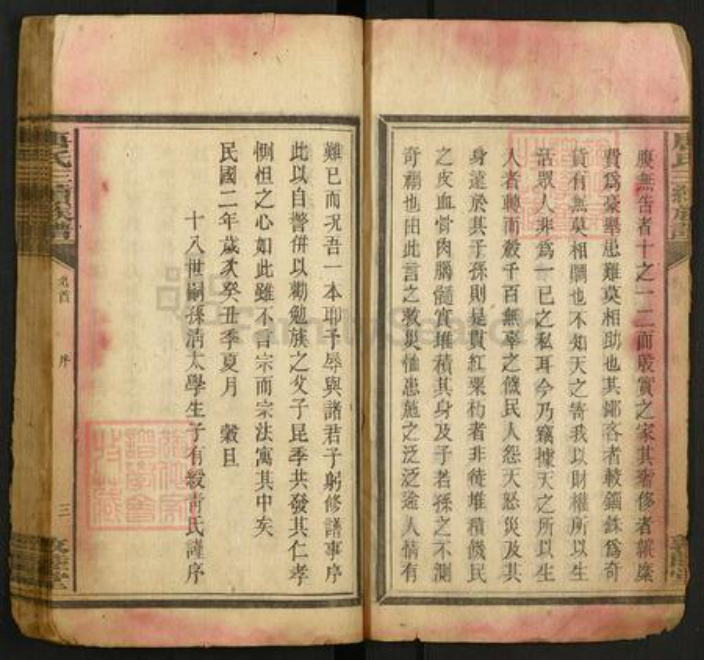 腹無告者十之一二而殷實之家其奢侈者輒糜
費為豪舉患難莫相助也其鄙吝者較錙銖為奇
貨有無莫相關也不知天之寄我以財權所以生
活眾人非為一己之私耳今乃竊據天之所以生
人者轉而殺千百無辜之饑民人怨天怒災及其
身遠於其子孫則是貫紅粟朽者非徒堆積饑民
之皮血骨肉腦髓實堆積其身及子若孫之不測
奇禍也由此言之救災恤患施之泛泛途人情有
難已而况吾一本耶予辱與諸君子躬修譜事序
此以自警併以勸勉族之父子昆季共發其仁孝
惻怛之心如此雖不言宗而宗法寓其中矣
民國二年歲次癸丑季夏月 穀旦
十八世嗣孫清太學生子有綬青氏謹序
唐氏三續族譜
卷首
序
三
FamilySearch